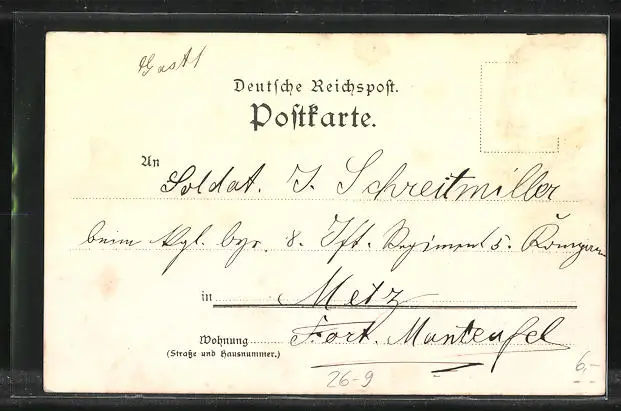 Deutsche Reichspost.
Postkarte.
An
Soldat. J. Schreitmiller
beim Kgl. byr. 8. Ift. Regiment 5. Kompanie
in Metz
Wohnung Fort. Manteufel
(Straße und Hausnummer.)
26-9
6,-